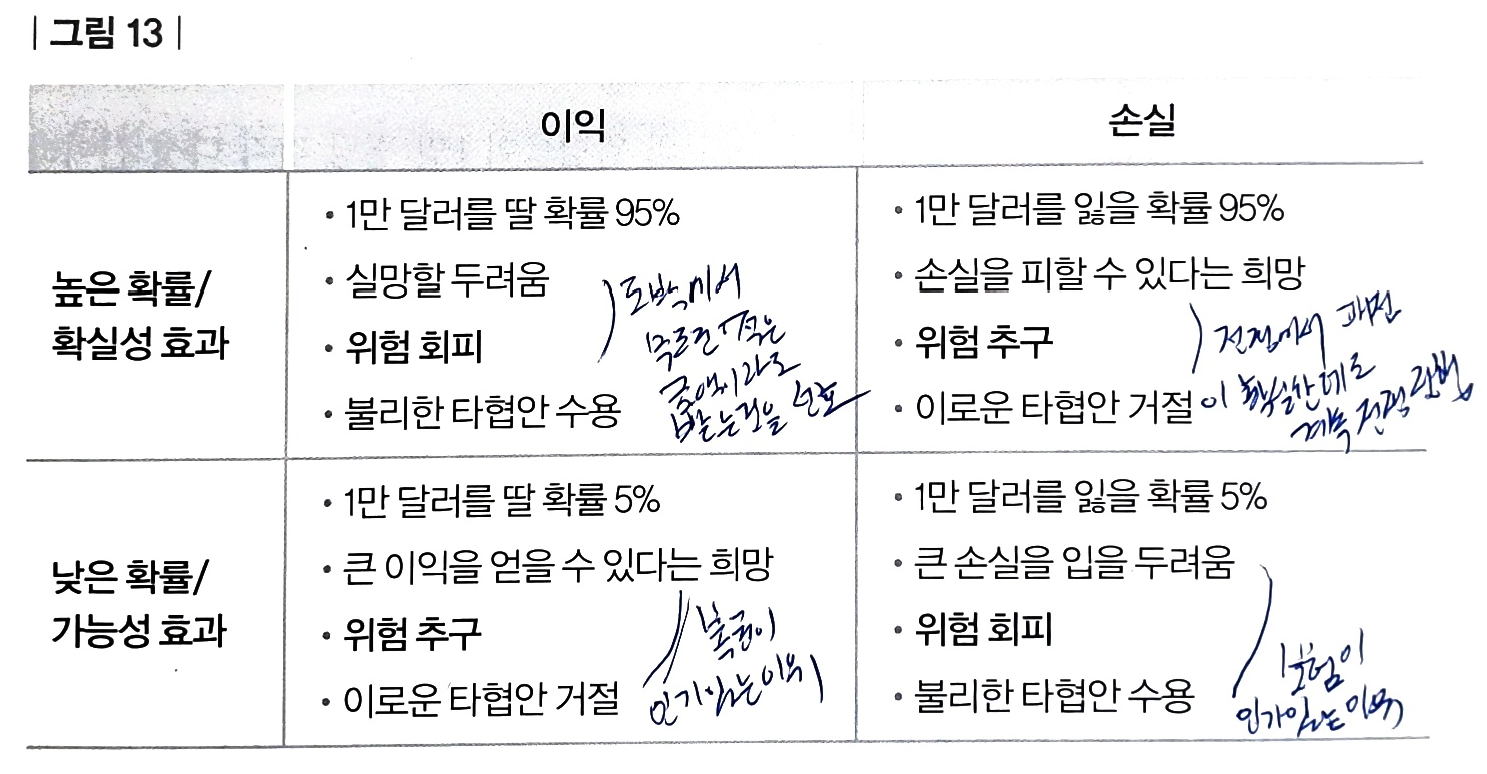 | 그림 13 |
이익
손실
높은 확률/
확실성 효과
• 1만 달러를 딸 확률 95%
• 실망할 두려움
• 위험 회피
• 불리한 타협안 수용
도박에서
적은
금액이라도
받는것을 선호
• 1만 달러를 잃을 확률 95%
• 손실을 피할 수 있다는 희망
• 위험 추구
• 이로운 타협안 거절
전쟁에서 패전
이 확실한데도
계속 전쟁 강행
낮은 확률/
가능성 효과
• 1만 달러를 딸 확률 5%
• 큰 이익을 얻을 수 있다는 희망
• 위험 추구
• 이로운 타협안 거절
복권이
인기있는이유
• 1만 달러를 잃을 확률 5%
• 큰 손실을 입을 두려움
• 위험 회피
• 불리한 타협안 수용
보험이
인기있는이유